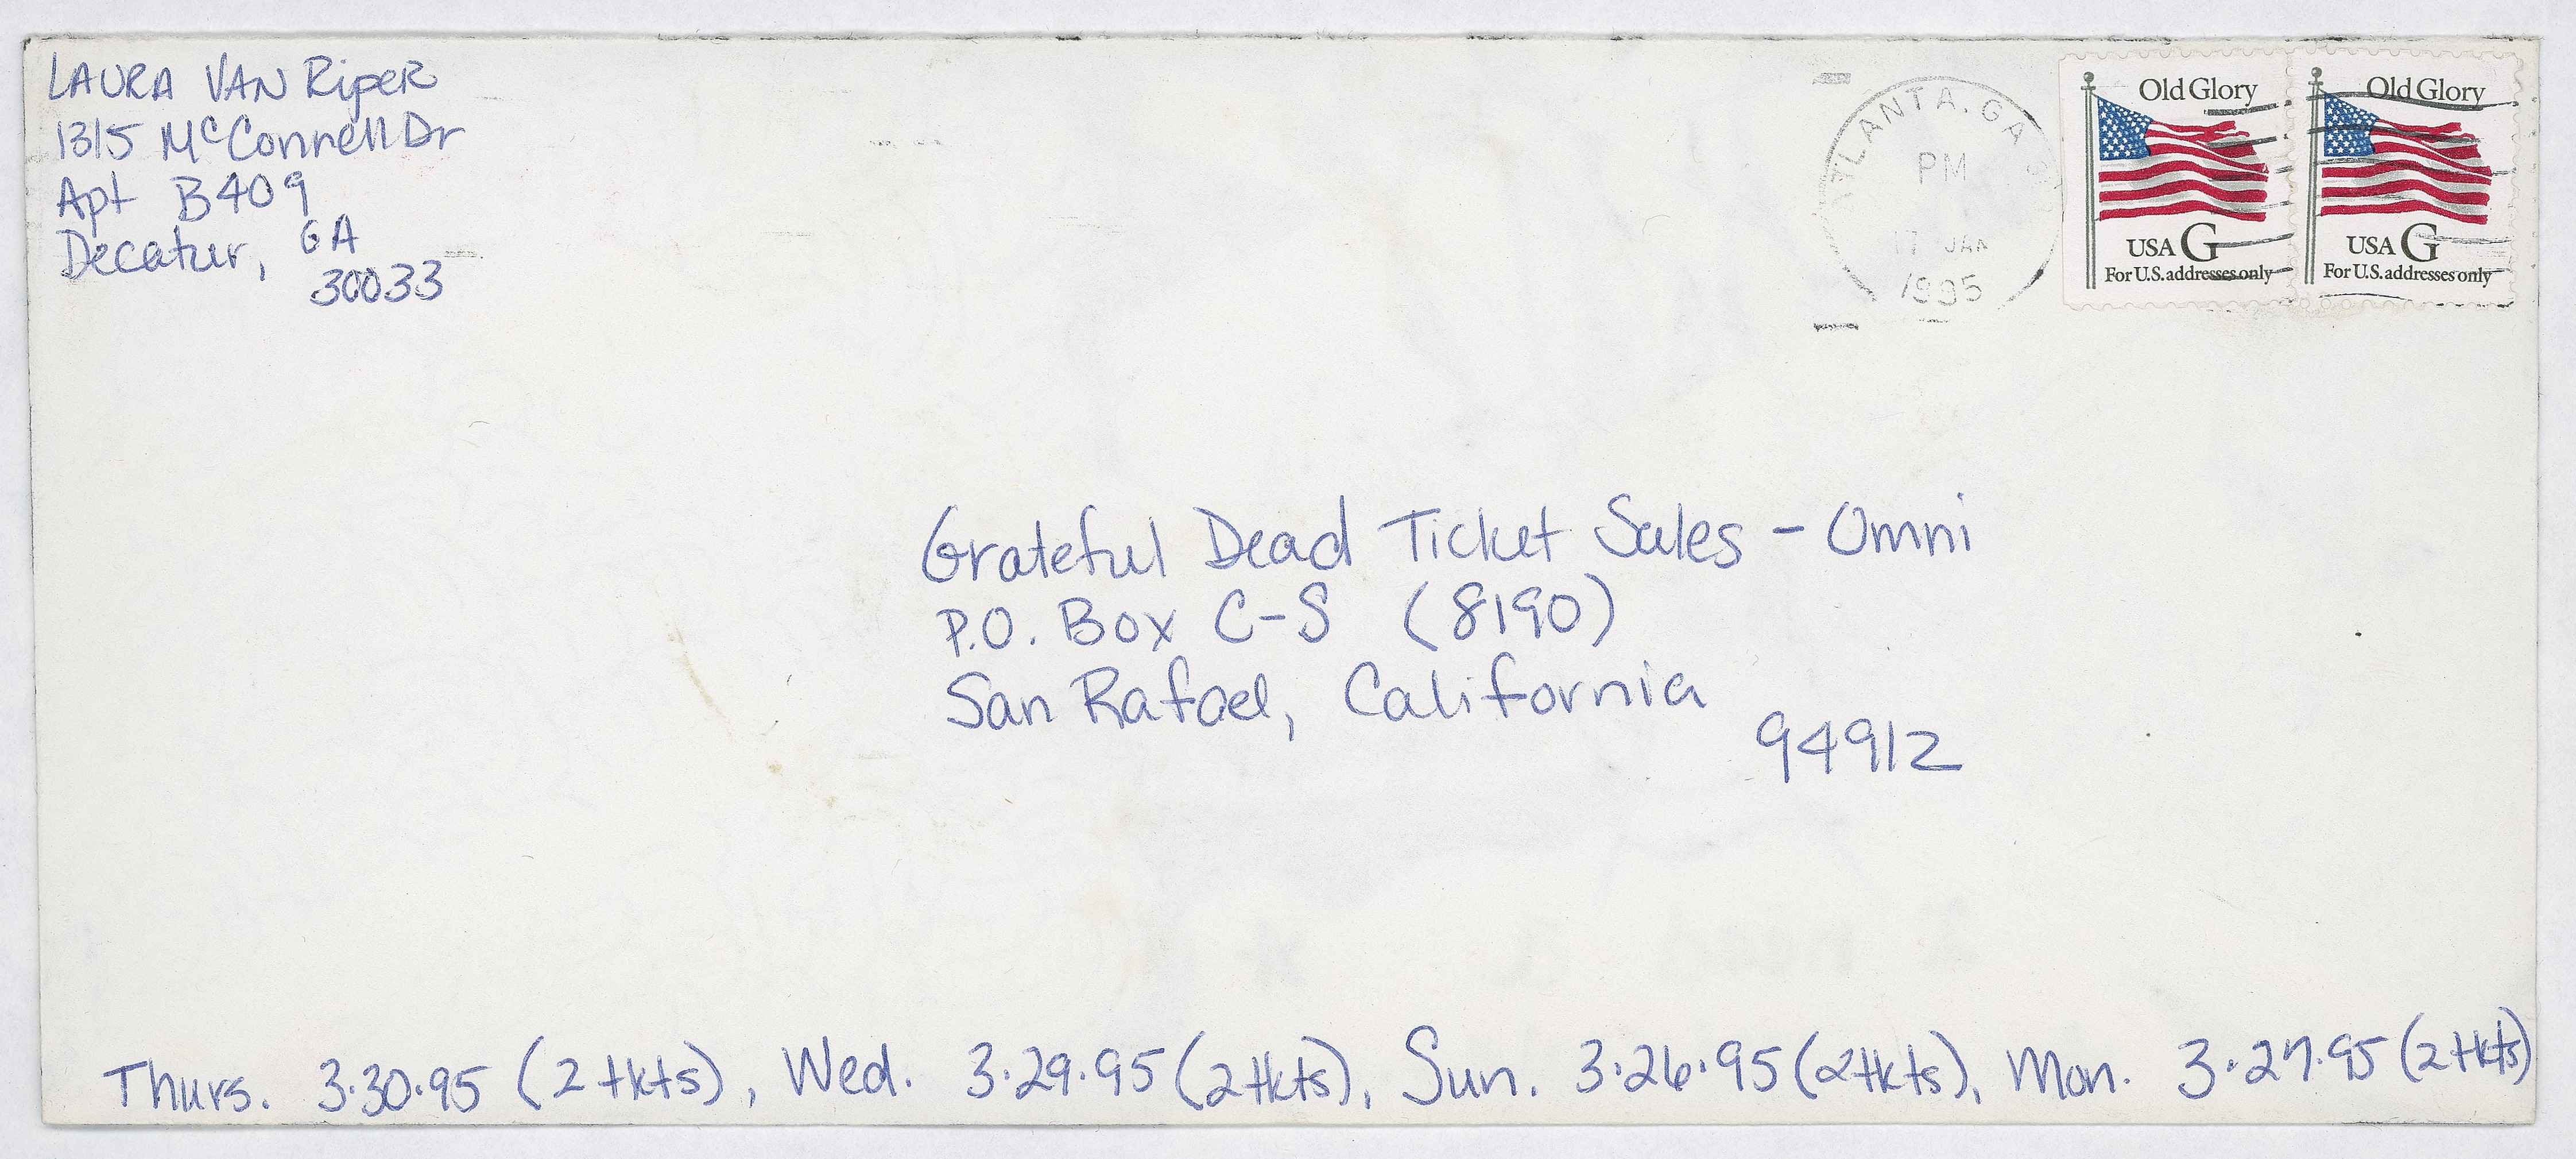 LAURA VAN RipeR
1315 McConnell Dr
Apt B409
Decatur, GA
30033
ATLANTA. GA
PM
17 JAN
1995
Old Glory
USA G
For U.S. addresses only
Old Glory
USA G
For U.S. addresses only
Grateful Dead Ticket Sales - Omni
P.O. Box C-S (8190)
San Rafael, California
94912
Thurs. 3.30.95 (2 tkts), Wed. 3.29.95 (2 tkts), Sun. 3.26.95 (2 tkts), Mon. 3.27.95 (2 tkts)